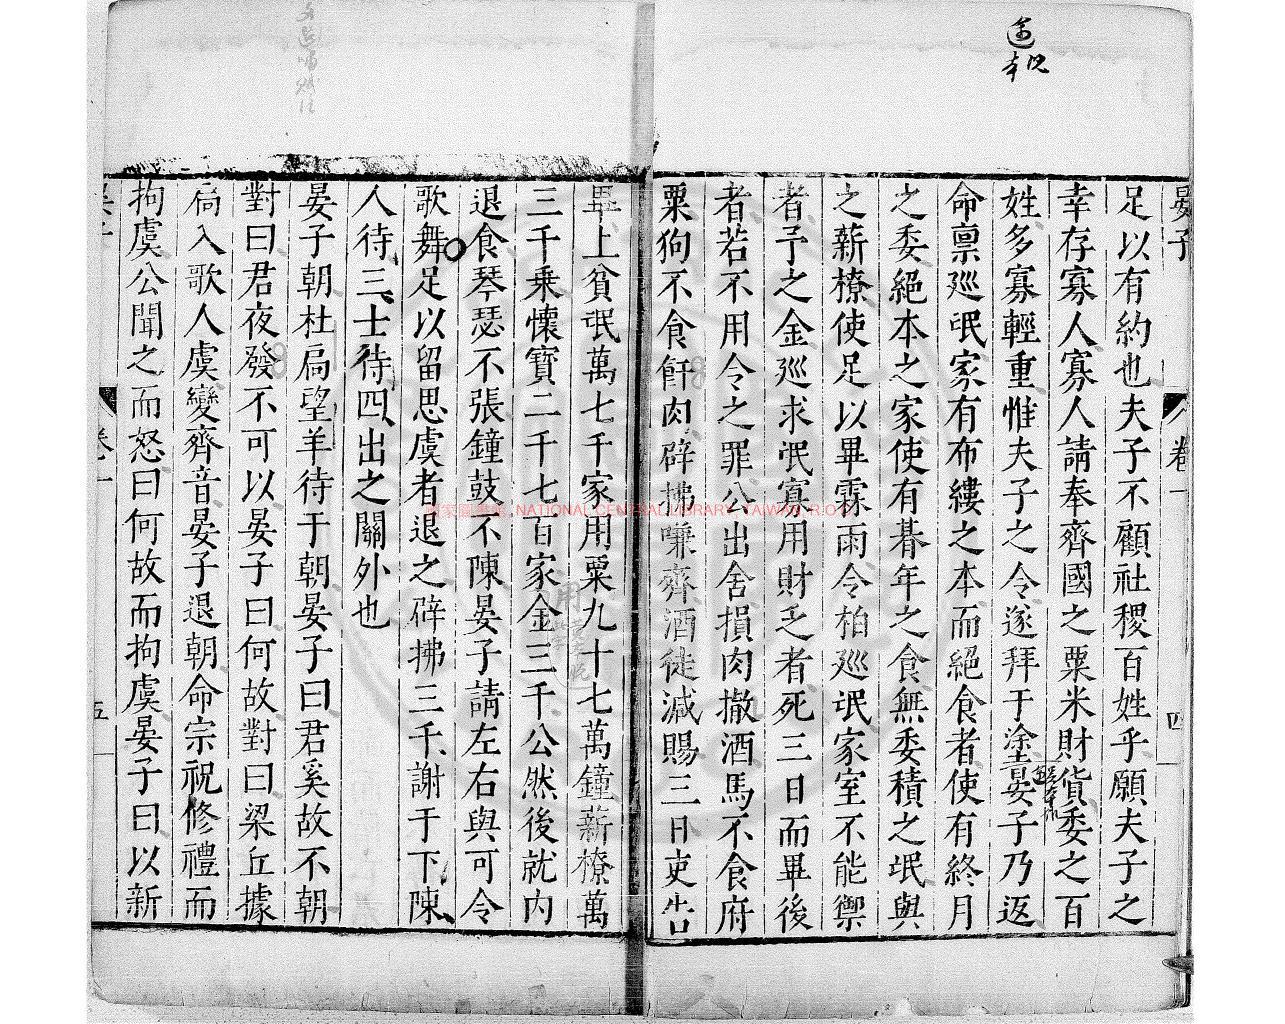 晏子
卷一
四
足以有約也夫子不顧社稷百姓乎願夫子之
幸存寡人寡人請奉齊國之粟米財貨委之百
姓多寡輕重惟夫子之令遂拜于塗晏子乃返
命稟巡氓家有布縷之本而絕食者使有終月
之委絕本之家使有朞年之食無委積之氓與
之薪橑使足以畢霖雨令柏巡氓家室不能禦
者予之金巡求氓寡用財乏者死三日而畢後
者若不用令之罪公出舍損肉撤酒馬不食府
粟狗不食飦肉辟拂嗛齊酒徒減賜三日吏告
畢上貧氓萬七千家用粟九十七萬鐘薪橑萬
三千乘懷寶二千七百家金三千公然後就內
退食琴瑟不張鐘鼓不陳晏子請左右與可令
歌舞足以留思虞者退之辟拂三千謝于下陳
人待三士待四出之關外也
晏子朝杜扃望羊待于朝晏子曰君奚故不朝
對曰君夜發不可以晏子曰何故對曰梁丘據
扃入歌人虞變齊音晏子退朝命宗祝修禮而
拘虞公聞之而怒曰何故而拘虞晏子曰以新
卷一
五
國家圖書館 NATIONAL CENTRAL LIBRARY, TAIWAN, R.O.C